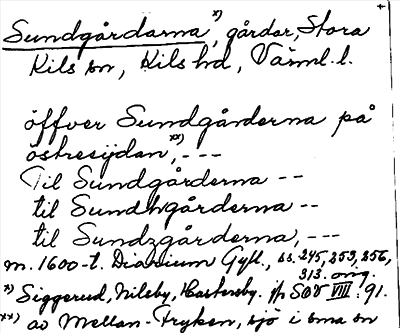 Sundgårdarna x), gårdar, Stora
Kils sn, Kils hd, Värml. l.
öffver Sundgårderna på
östresijdan xx), ---
Til Sundgårderna --
til Sundhgårderna --
til Sundzgårderna, ---
m. 1600-t. Diarium Gyll., ss. 245, 253, 256,
313. orig.
x) Siggerud, Nilsby, Hastersby. jfr SOV VIII : 91.
xx) av Mellan-Fryken, sjö i sma sn